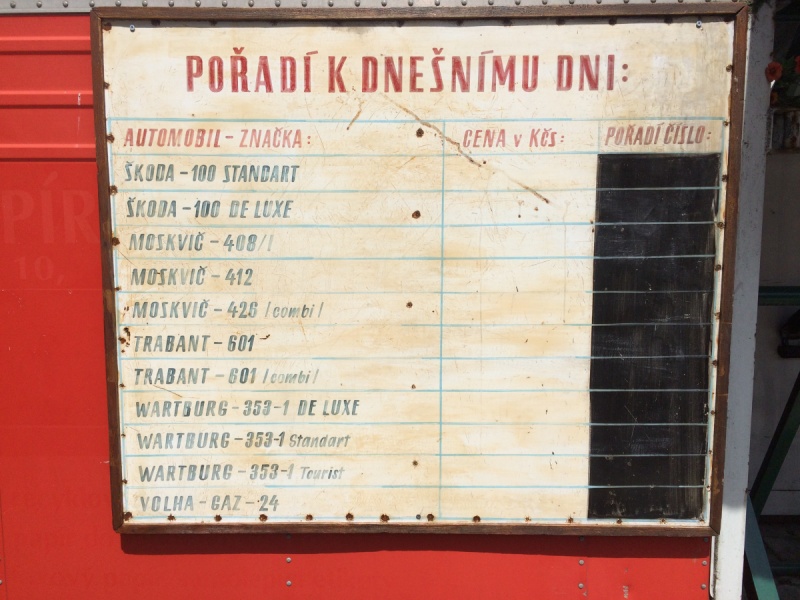 POŘADÍ K DNEŠNÍMU DNI:
AUTOMOBIL – ZNAČKA: CENA v Kčs: POŘADÍ ČÍSLO:
ŠKODA – 100 STANDART
ŠKODA – 100 DE LUXE
MOSKVIČ – 408/I
MOSKVIČ – 412
MOSKVIČ – 426 /combi/
TRABANT – 601
TRABANT – 601 /combi/
WARTBURG – 353-1 DE LUXE
WARTBURG – 353-1 Standart
WARTBURG – 353-1 Tourist
VOLHA – GAZ – 24
PÍR
10,